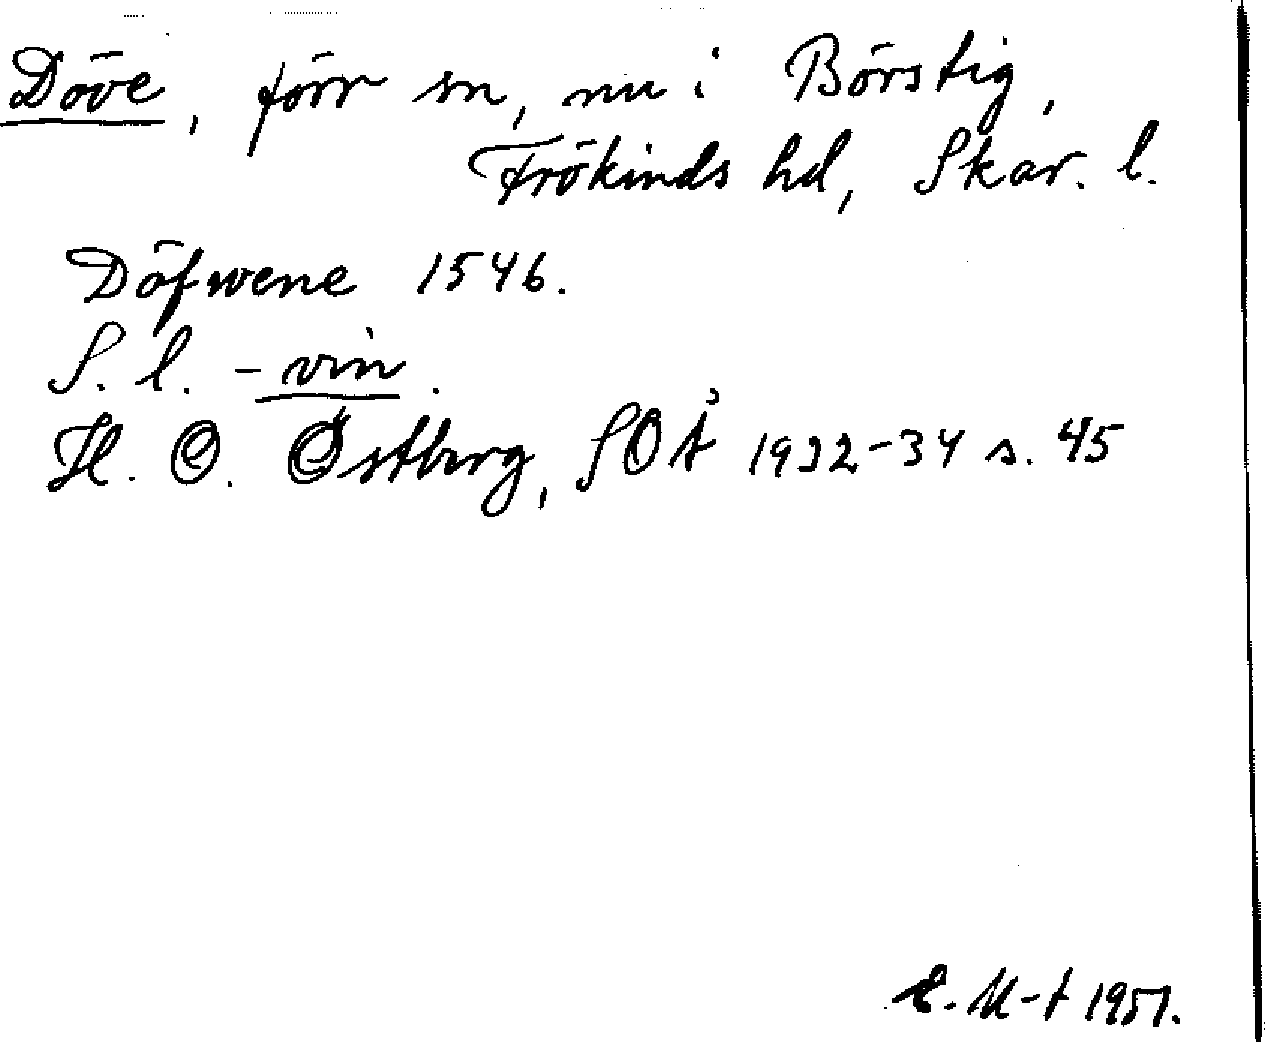 Döve, förr sn, nu i Börstig,
Frökinds hd, Skar. l.
Döfwene 1546.
S. l. - vin.
H. O. Östberg, SOÅ 1932-34 s. 45
E. M-t 1951.